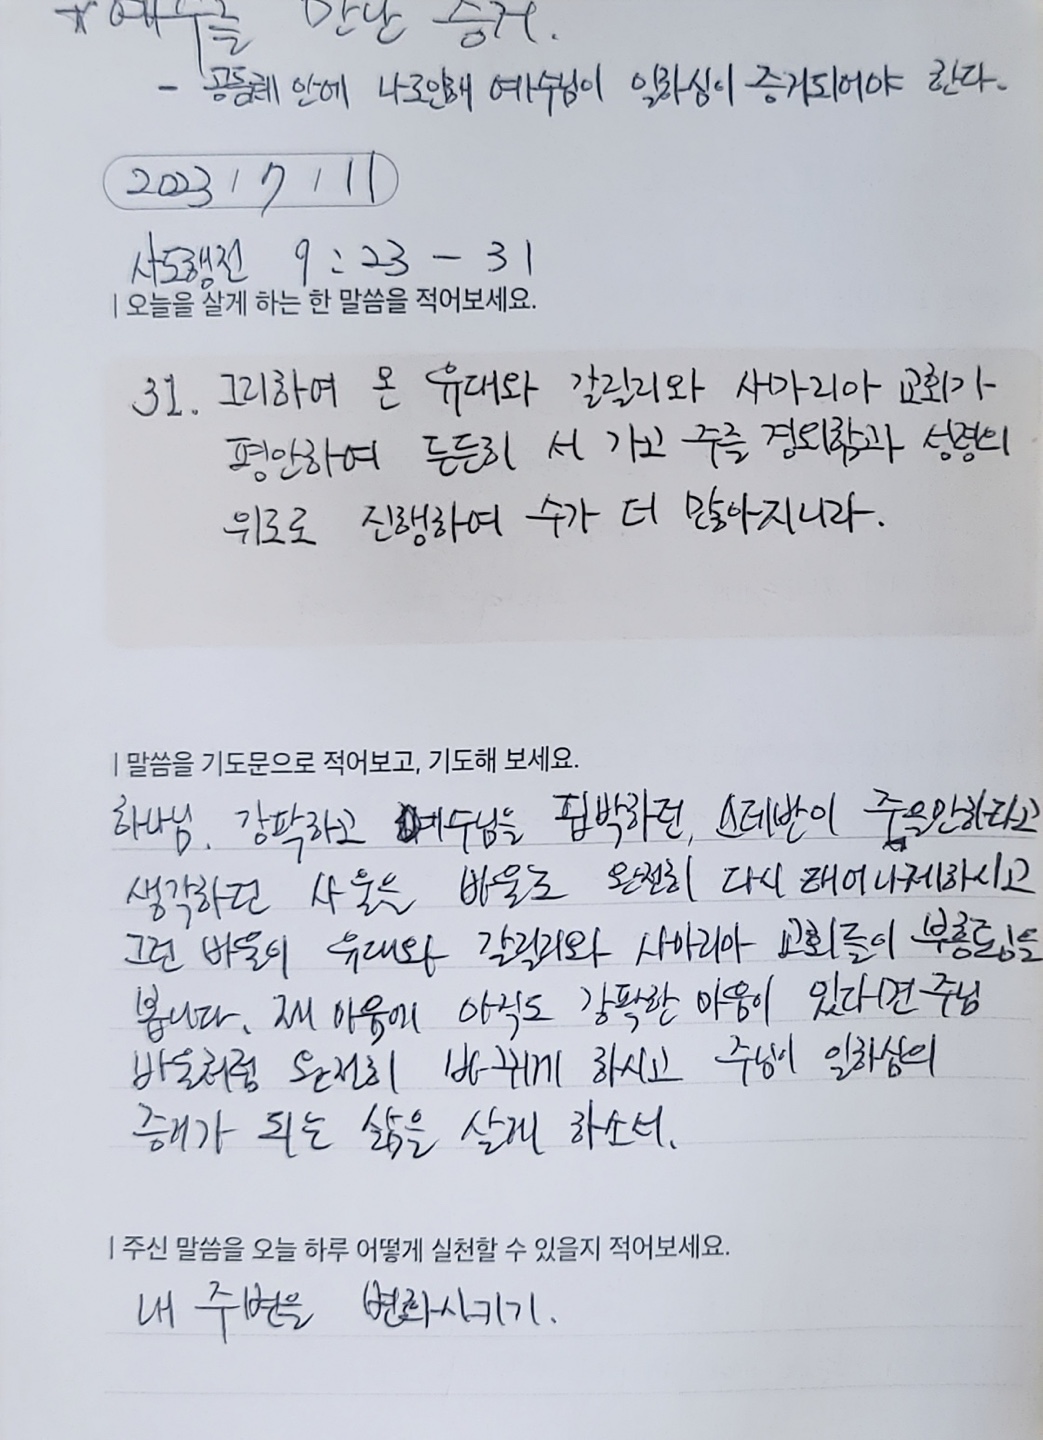 * 예수를 만난 증거.
- 공동체 안에 나로인해 예수님이 일하심이 증거되어야 한다.
2023 / 7 / 11
사도행전 9 : 23 - 31
| 오늘을 살게 하는 한 말씀을 적어보세요.
31. 그리하여 온 유대와 갈릴리와 사마리아 교회가
평안하여 든든히 서 가고 주를 경외함과 성령의
위로로 진행하여 수가 더 많아지니라.
| 말씀을 기도문으로 적어보고, 기도해 보세요.
하나님. 강퍅하고 예수님을 핍박하던, 스데반이 죽음안하다고
생각하던 사울은 바울로 완전히 다시 태어나게하시고
그런 바울이 유대와 갈릴리와 사마리아 교회들이 부흥됨을
봅니다. 제 마음에 아직도 강퍅한 마음이 있다면 주님
바울처럼 완전히 바뀌게 하시고 주님이 일하심의
증거가 되는 삶을 살게 하소서.
| 주신 말씀을 오늘 하루 어떻게 실천할 수 있을지 적어보세요.
내 주변을 변화시키기.